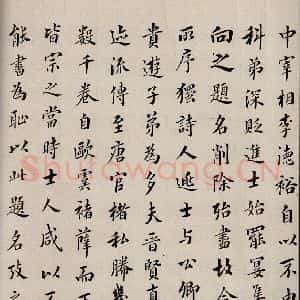 中宰相李德裕自以不
科第深貶進士始罷宴集
向之題名削除殆盡故今
所存獨詩人逸士与公卿
貴遊子弟為多夫晉賢真
迹流傳至唐官楮私幾
數千卷自歐虞褚薛而下
皆宗之當時士人咸以不
能書為恥以此題名攷之
Shufawang.CN